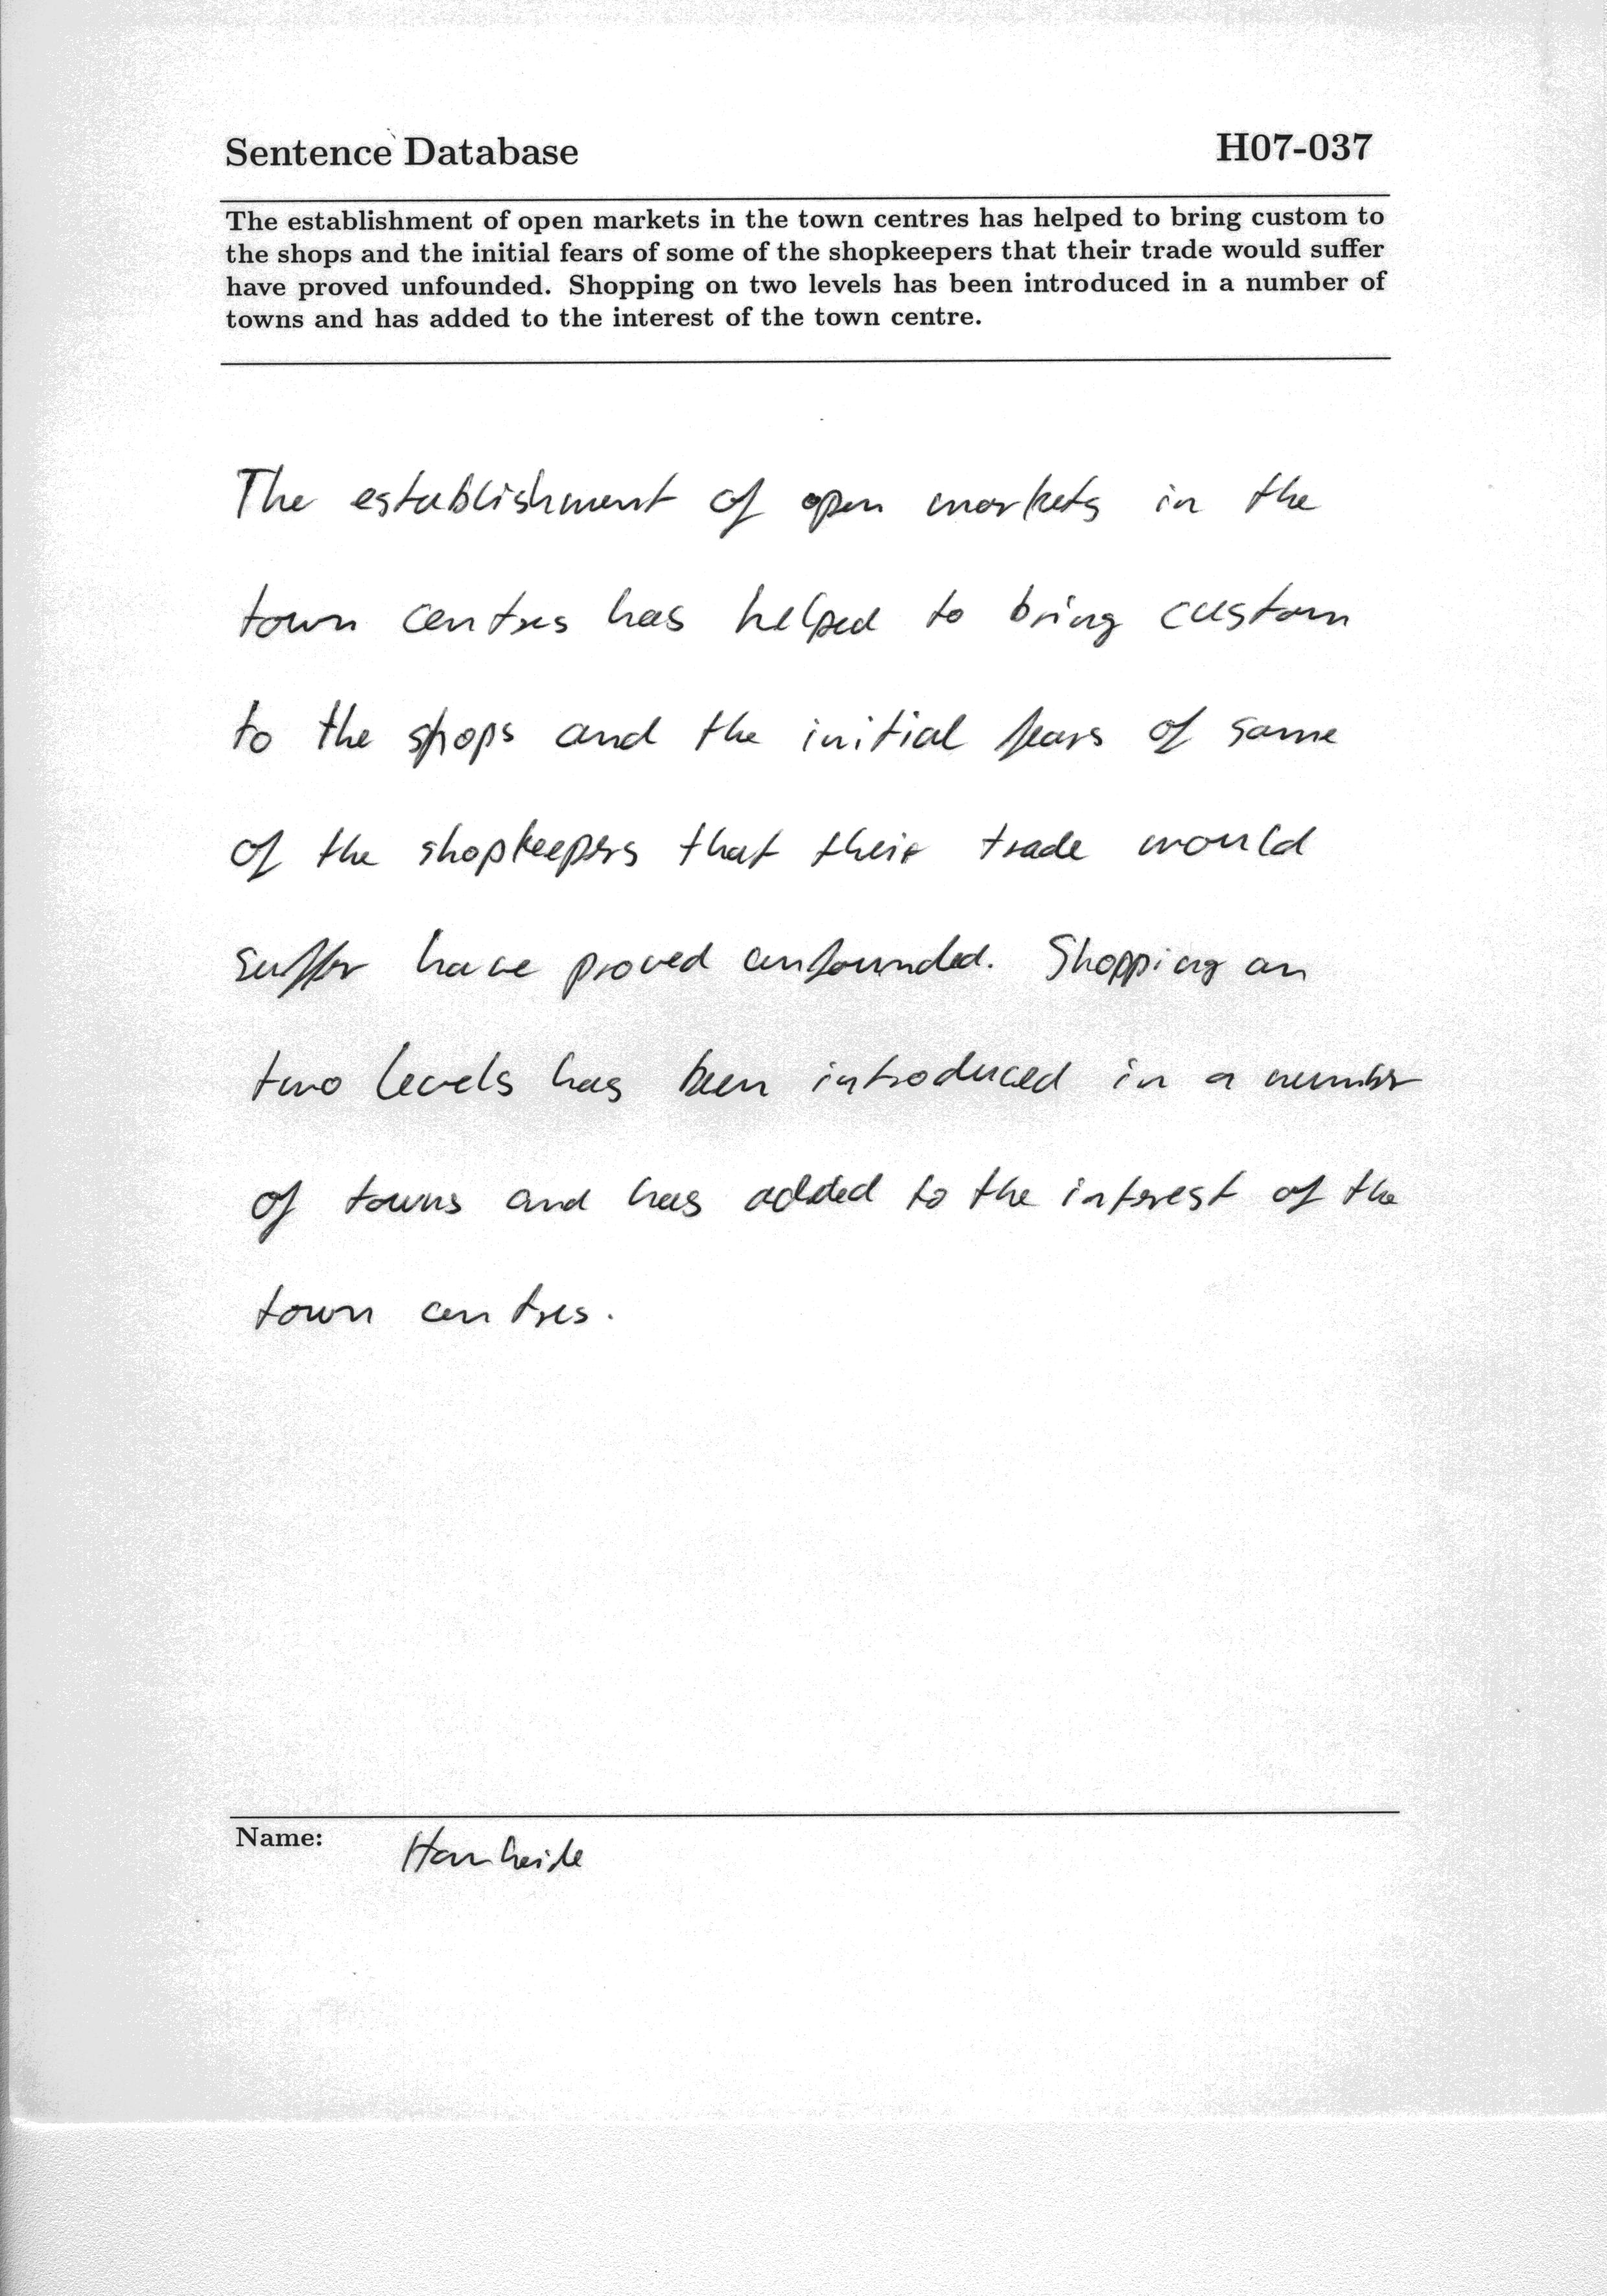 Sentence Database H07-037
The establishment of open markets in the town centres has helped to bring custom to
the shops and the initial fears of some of the shopkeepers that their trade would suffer
have proved unfounded. Shopping on two levels has been introduced in a number of
towns and has added to the interest of the town centre.
The establishment of open markets in the
town centres has helped to bring custom
to the shops and the initial fears of some
of the shopkeepers that their trade would
suffer have proved unfounded. Shopping on
two levels has been introduced in a number
of towns and has added to the interest of the
town centres.
Name: Hanheide